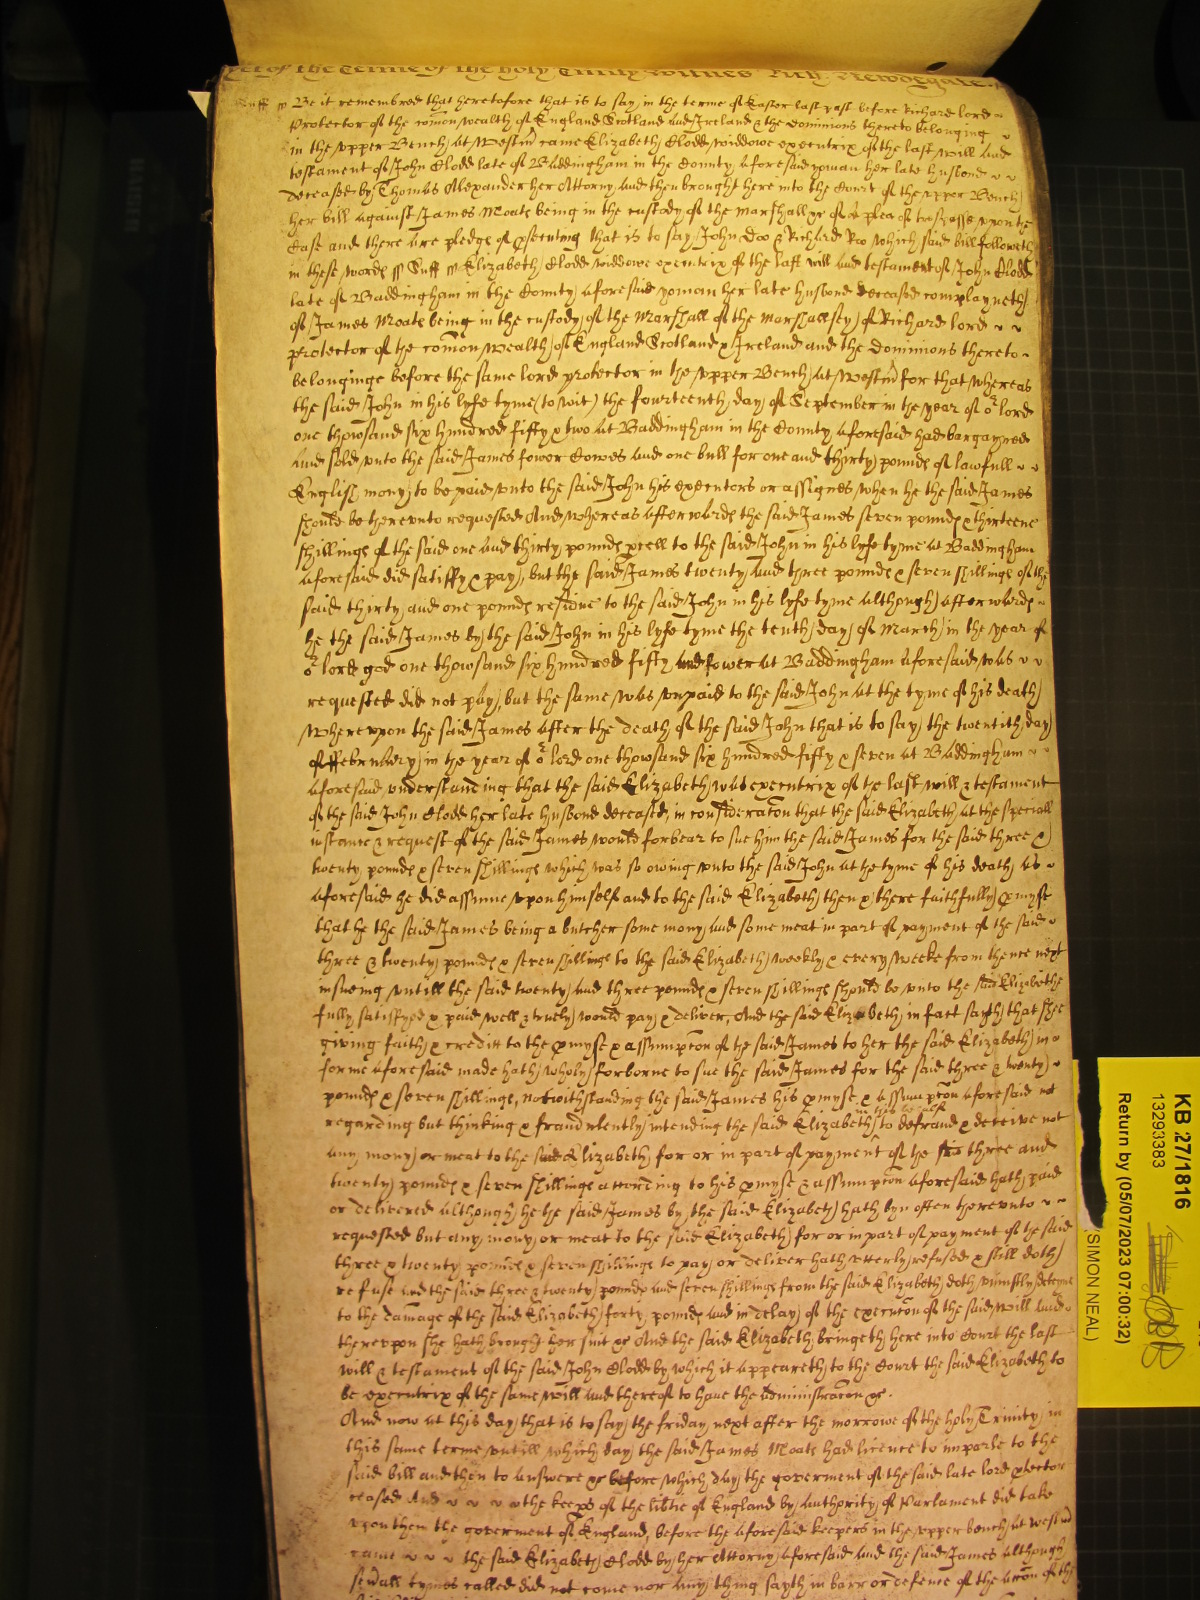 yet of the Terme of the holy Trinity witnes Rich: Newdegate
Suff ss Be it remembred that heretofore that is to say in the terme of Easter last past before Richard lord
Protector of the com̄onwealth of England Scotland and Ireland & the dominions thereto belonging
in the upper Bench at Westm̄ came Elizabeth Clodd widdowe executrix of the last will and
testament of John Clodd late of Baddingham in the County aforesaid yoman her late husbond
deceased by Thomas Alexander her Attorny and then brought here into the Court of the upper Bench
her bill against James Moats being in the custody of the marshall &c of a plea of trespasse upon the
Case and there are pledges of p̱secuting that is to say John Doo & Richard Roo which said bill followeth
in these words ss Suff ss Elizabeth Clodd widdowe executrix of the last will and testament of John Clodd
late of Baddingham in the County aforesaid yoman her late husbond deceased complayneth
of James Moats being in the custody of the Marshall of the Marshallsey of Richard lord
protector of the com̄onwealth of England Scotland & Ireland and the dominions thereto
belonginge before the same lord protector in the upper Bench at Westm̄ for that whereas
the said John in his lyfe tyme (to wit) the fourteenth day of September in the year of or lord
one thowsand six hundred fifty & two at Baddingham in the County aforesaid had bargayned
and sold unto the said James fower Cowes and one bull for one and thirty pounds of lawfull
English mony to be paid unto the said John his executors or assignes when he the said James
should be thereunto requested And whereas afterwards the said James seven pounds & thirteene
shillings of the said one and thirty pounds p̱cell to the said John in his lyfe tyme at Baddingham
aforesaid did satisfy & pay, but the said James twenty and three pounds & seven shillings of the
said thirty and one pounds residue to the said John in his lyfe tyme although afterwards
he the said James by the said John in his lyfe tyme the tenth day of March in the year of
or lord god one thowsand six hundred fifty and fower at Baddingham aforesaid was
requested did not pay, but the same was unpaid to the said John at the tyme of his death
Whereupon the said James after the death of the said John that is to say the twentith day
of ffebruary in the year of or lord one thowsand six hundred fifty & seven at Baddingham
aforesaid understanding that the said Elizabeth was executrix of the last will & testament
of the said John Clodd her late husbond deceased, in consideracōn that the said Elizabeth at the speciall
instance & request of the said James would forbear to sue him the said James for the said three &
twenty pounds & seven shillings which was so owing unto the said John at the tyme of his death as
aforesaid he did assume upon himself and to the said Elizabeth then & there faithfully p̱myse
that he the said James being a butcher some mony and some meat in part of payment of the said
three & twenty pounds & seven shillings to the said Elizabeth weekly & every weeke from thence next
insuing untill the said twenty and three pounds & seven shillings should be unto the said Elizabethe
fully satisfyed & paid well & truely would pay & deliver, And the said Elizabeth in fact sayth that she
giving faith & creditt to the p̱myse & assumpcōn of the said James to her the said Elizabeth in
forme aforesaid made hath wholy forborne to sue the said James for the said three & twenty
pounds & seven shillings, notwithstanding the said James his p̱myse & assumpcōn aforesaid not
regarding but thinking & fraudulently intending the said Elizabeth in this behalf to defraud & deceive not
any mony or meat to the said Elizabeth for or in part of payment of the three and
twenty pounds & seven shillings according to his p̱myse & assumpcōn aforesaid hath paid
or delivered although he the said James by the said Elizabeth hath byn often thereunto
requested but any mony or meat to the said Elizabeth for or in part of payment of the said
three & twenty pounds & seven shillings to pay or deliver hath utterly refused & still doth
refuse and the said three & twenty pounds and seven shillings from the said Elizabeth doth uniustly deteyne
to the damage of the said Elizabeth forty pounds and in delay of the execucōn of the said will and
thereupon she hath brought her suit &c And the said Elizabeth bringeth here into Court the last
will & testament of the said John Clodd by which it appeareth to the Court the said Elizabeth to
be executrix of the same will and thereof to have the administracōn &c.
And now at this day that is to say the friday next after the morrowe of the holy Trinity in
this same terme untill which day the said James Moats had licence to imparle to the
said bill and then to answere &c before which day the goverment of the said late lord p̱tector
ceased And the keeps of the lib̄tie of England by authority of Parlament did take
upon them the goverment of England, before the aforesaid keepers in the upper bench at Westm̄
came the said Elizabeth Clodd by her Attorny aforesaid and the said James although
sevall tymes called did not come nor any thing sayth in barr or defence of the accōn of the
KB 27/1816
13293383
Return by (05/07/2023 07:00:32)
SIMON NEAL)